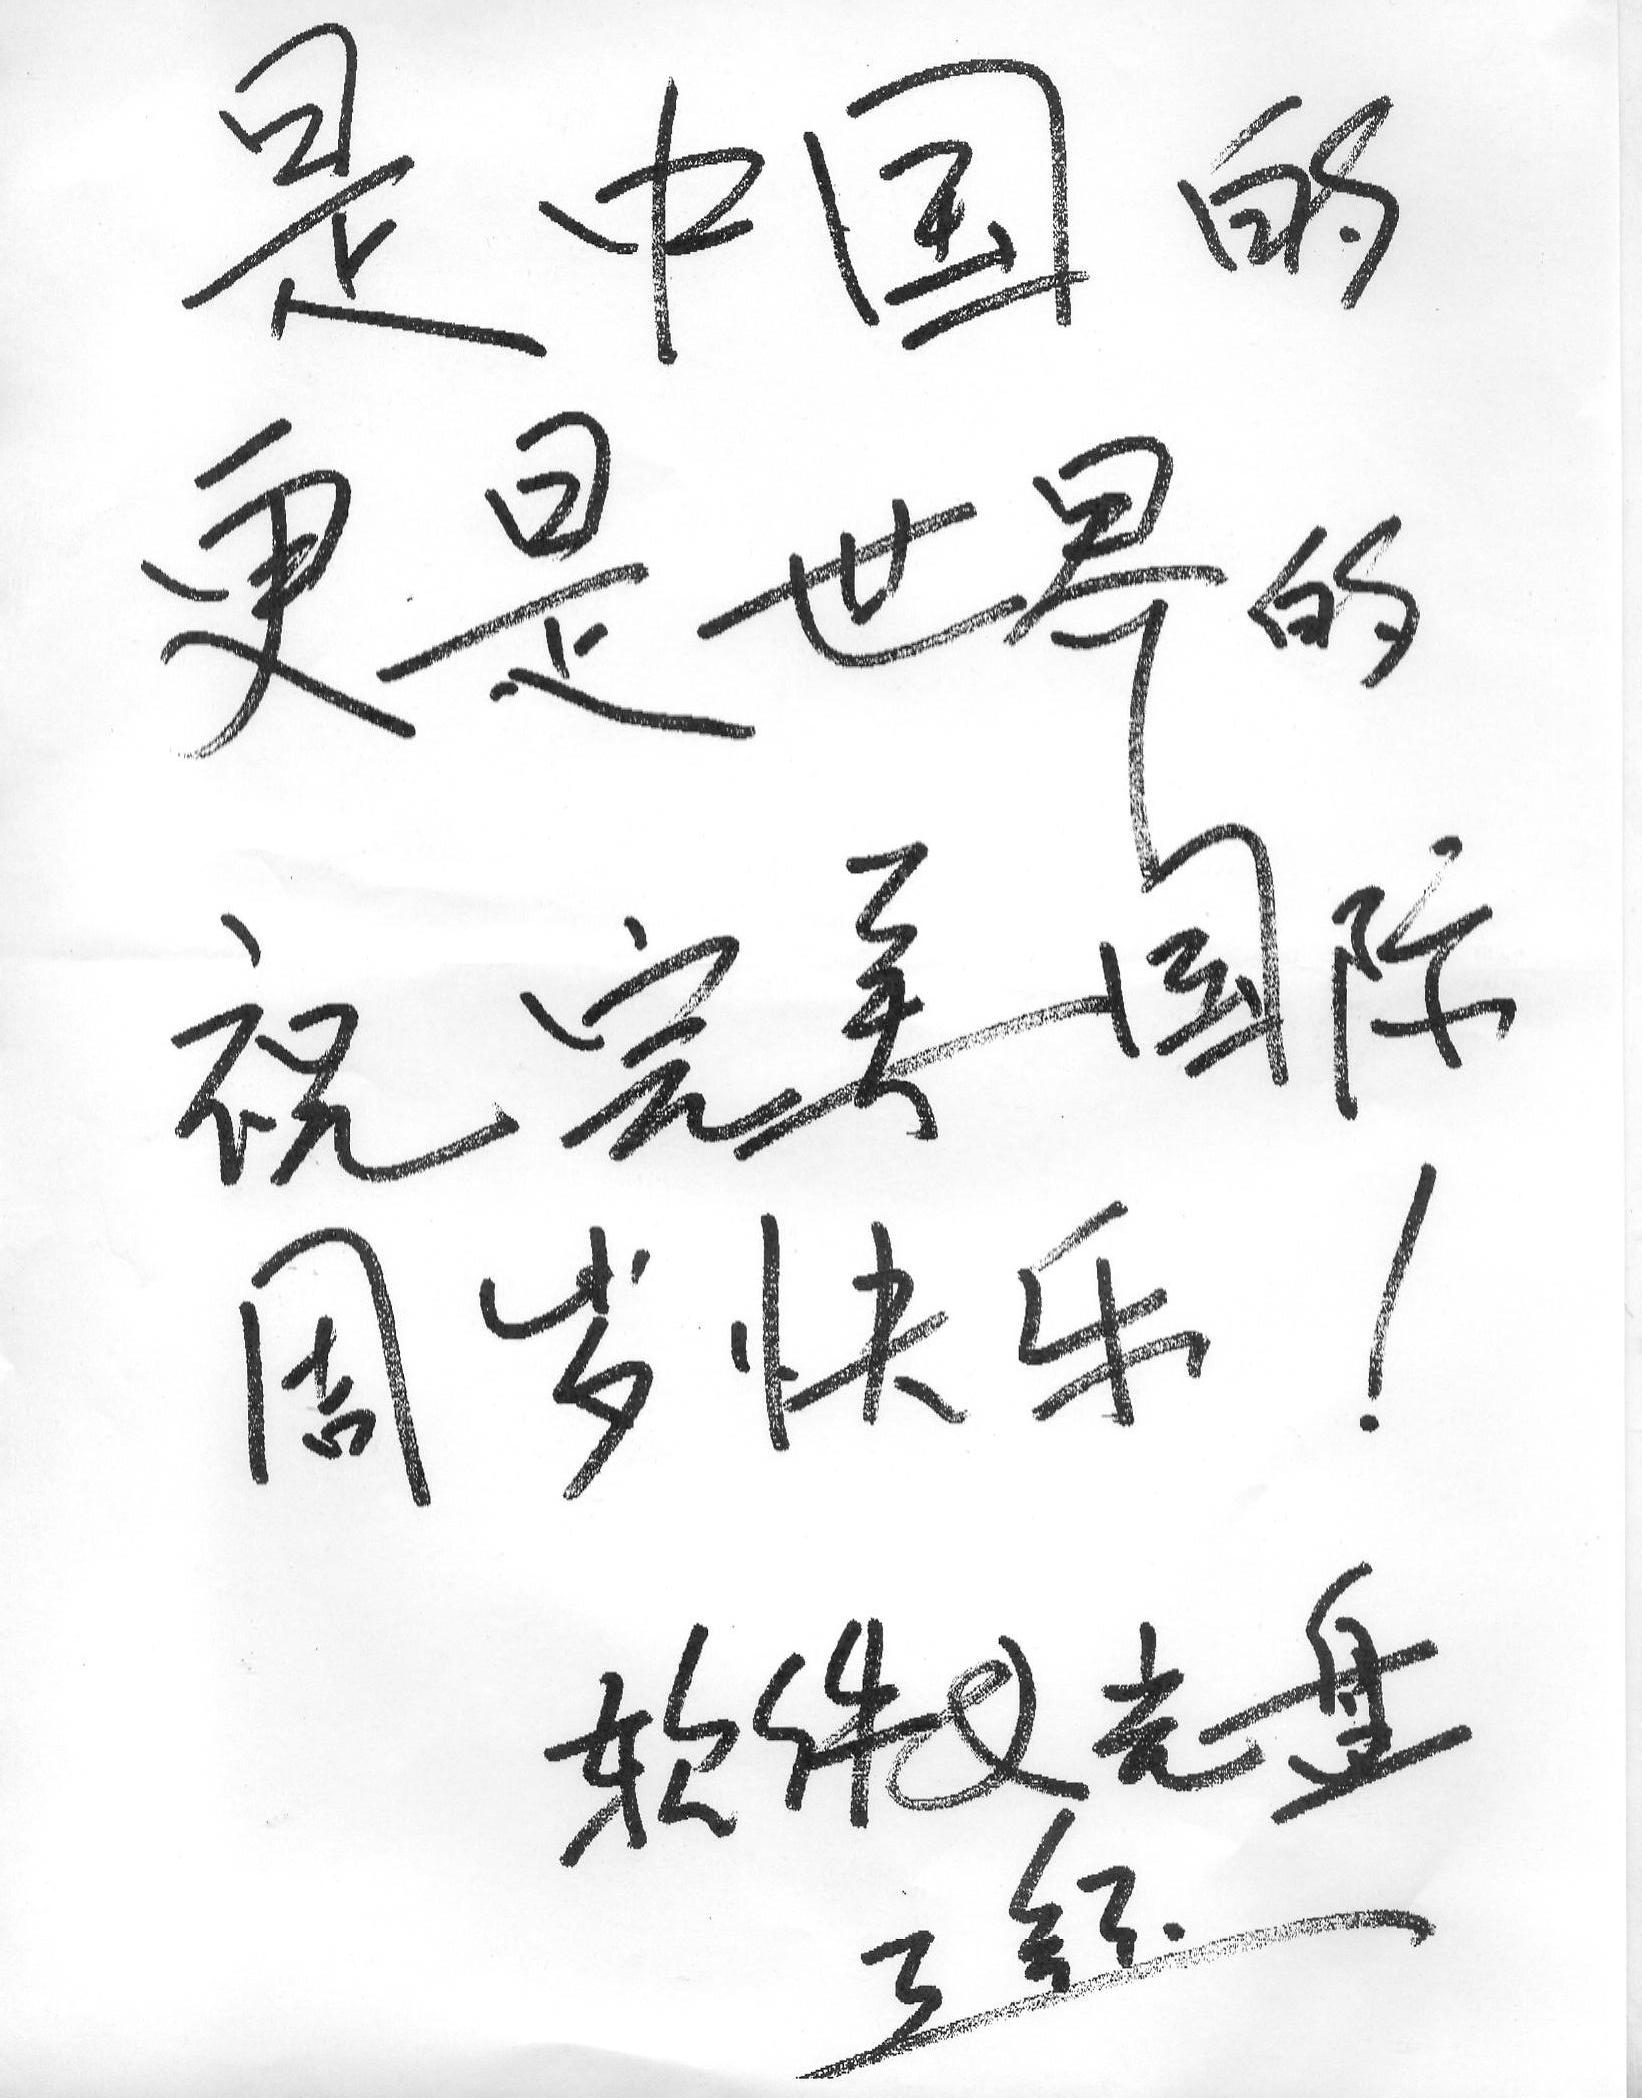 是中国的
更是世界的
祝完美国际
周岁快乐!
软件与光盘
王红